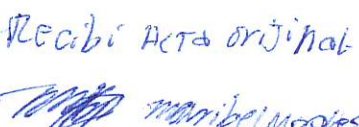 Recibi Acta orijinal
maribel